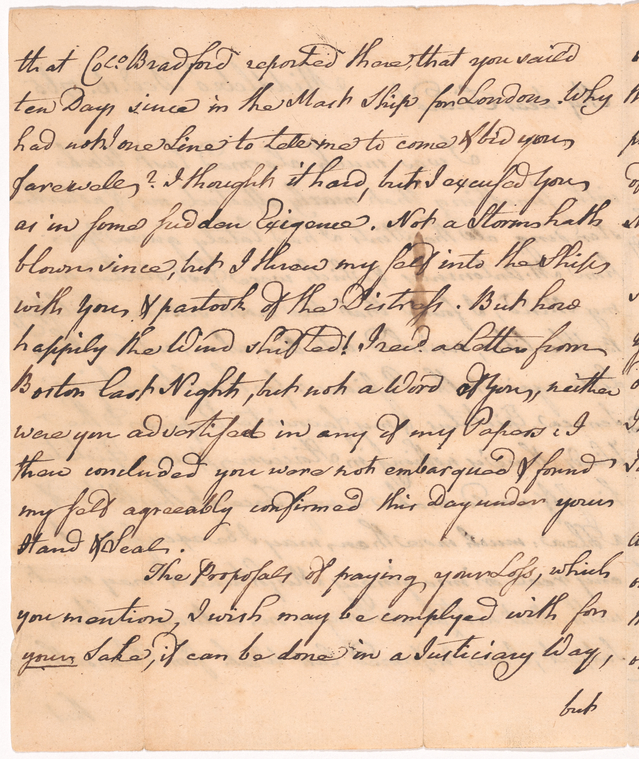 that Colo. Bradford reported there, that you sail'd
ten Days since in the Mast Ship for London. Why
had not I one Line to tell me to come & bid you
farewell? I thought it hard, but I excused you
as in some sudden Exigence. Not a Storm hath
blown since, but I threw my self into the Ship
with you & partook of the Distress. But how
happily the Wind shifted! I recd. a Letter from
Boston last Night, but not a Word of you, neither
were you advertised in any of my Papers: I
then concluded you were not embarqued & found
my self agreeably confirmed this Day under your
Hand & Seal.
The Proposals of paying your Loss, which
you mention, I wish may be complyed with for
your Sake, if can be done in a Justiciary Way,
but